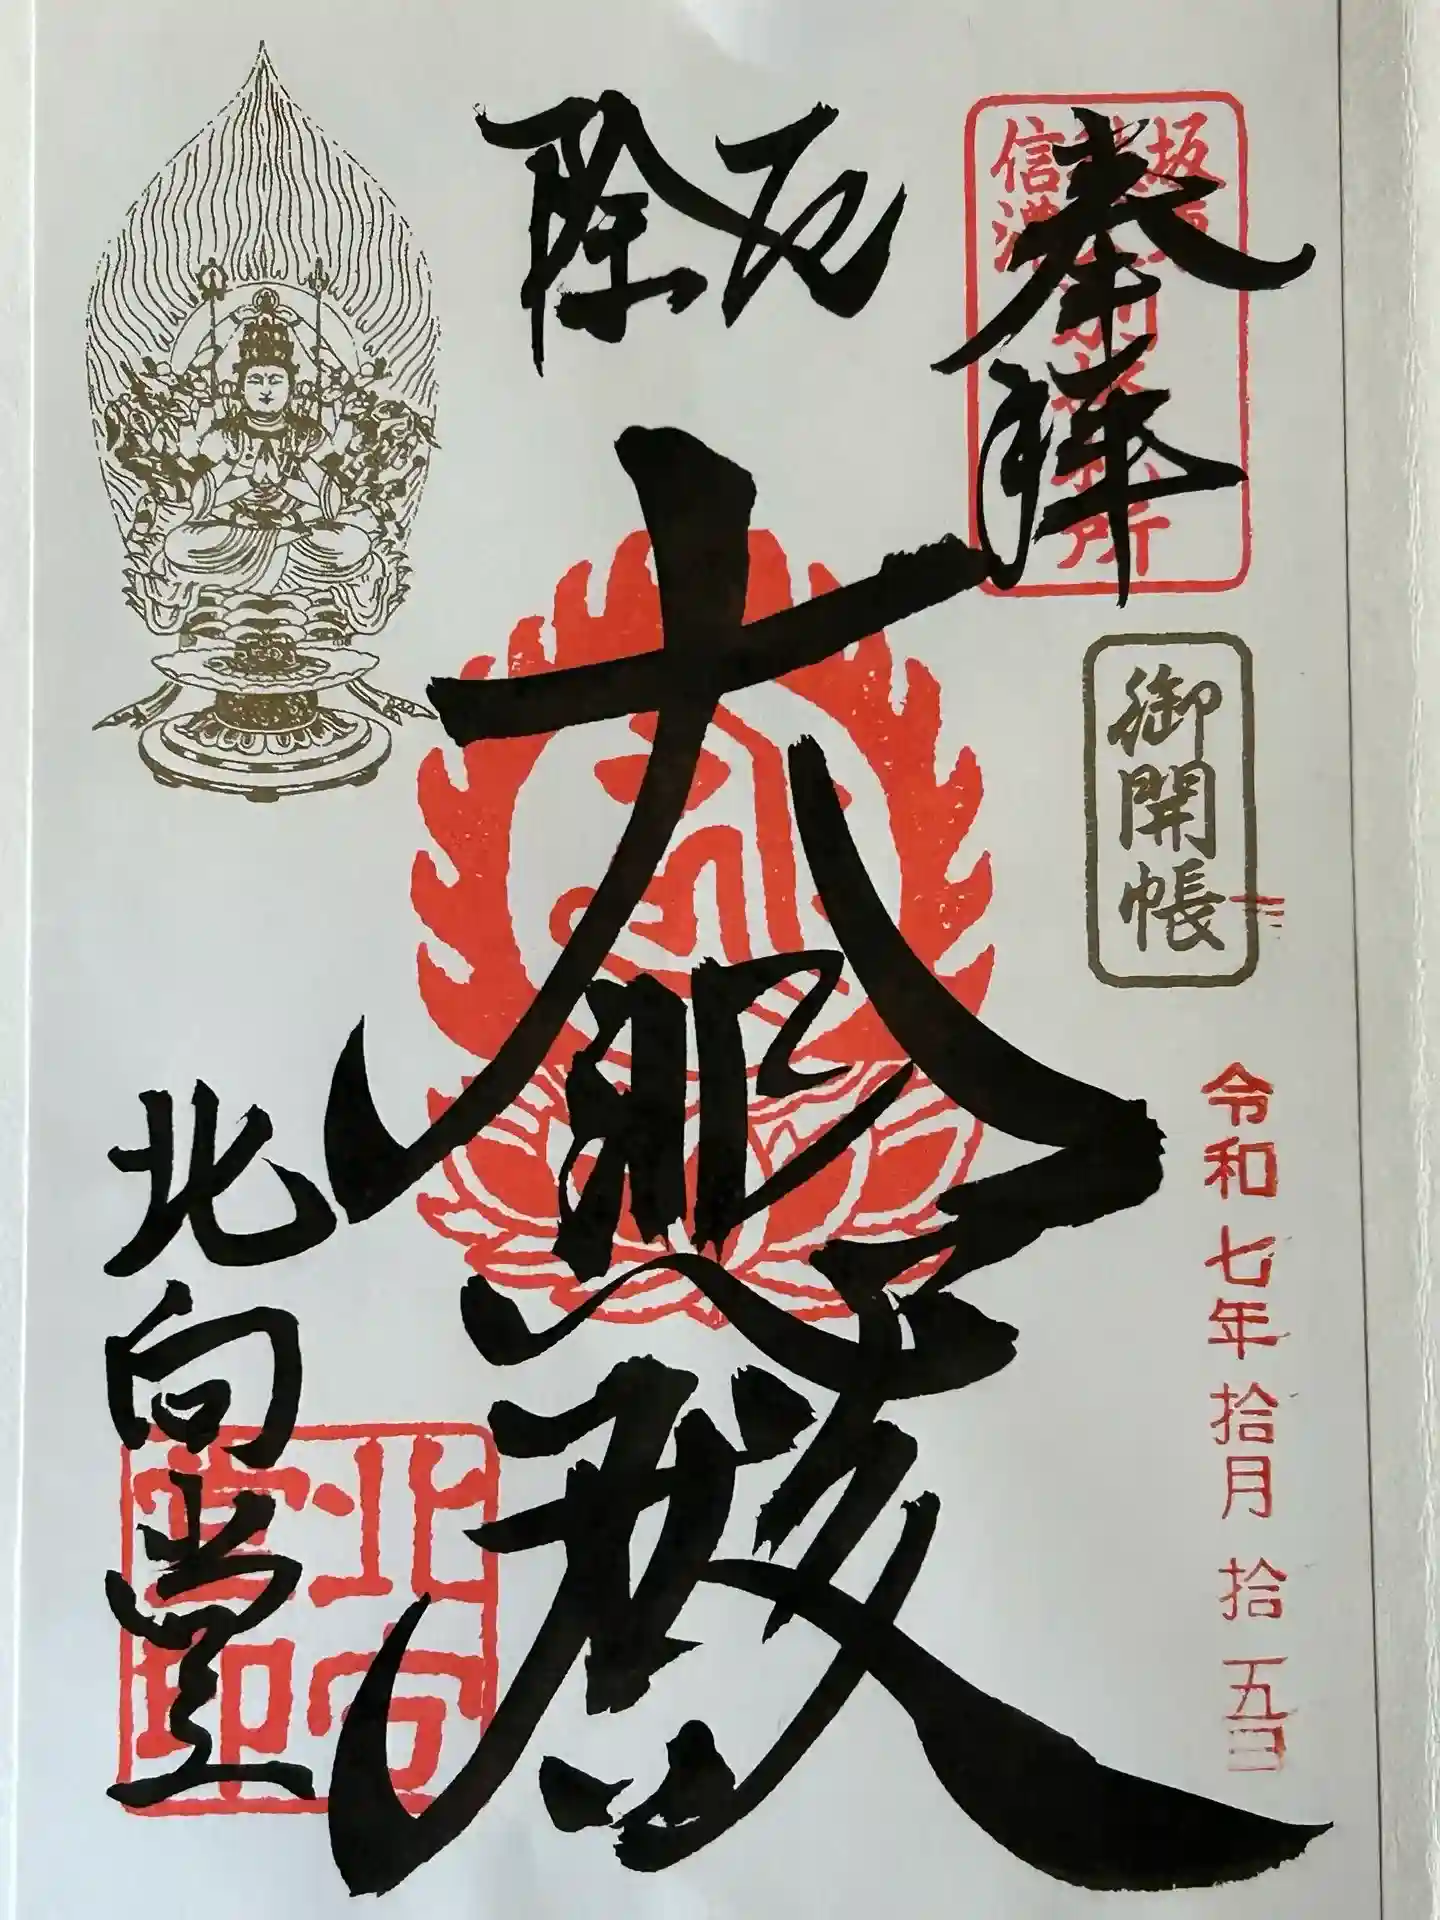 奉拝
坂東
信濃
別格札所
御開帳
令和七年拾月拾五日
厄除
大悲殿
北向堂
北向堂印